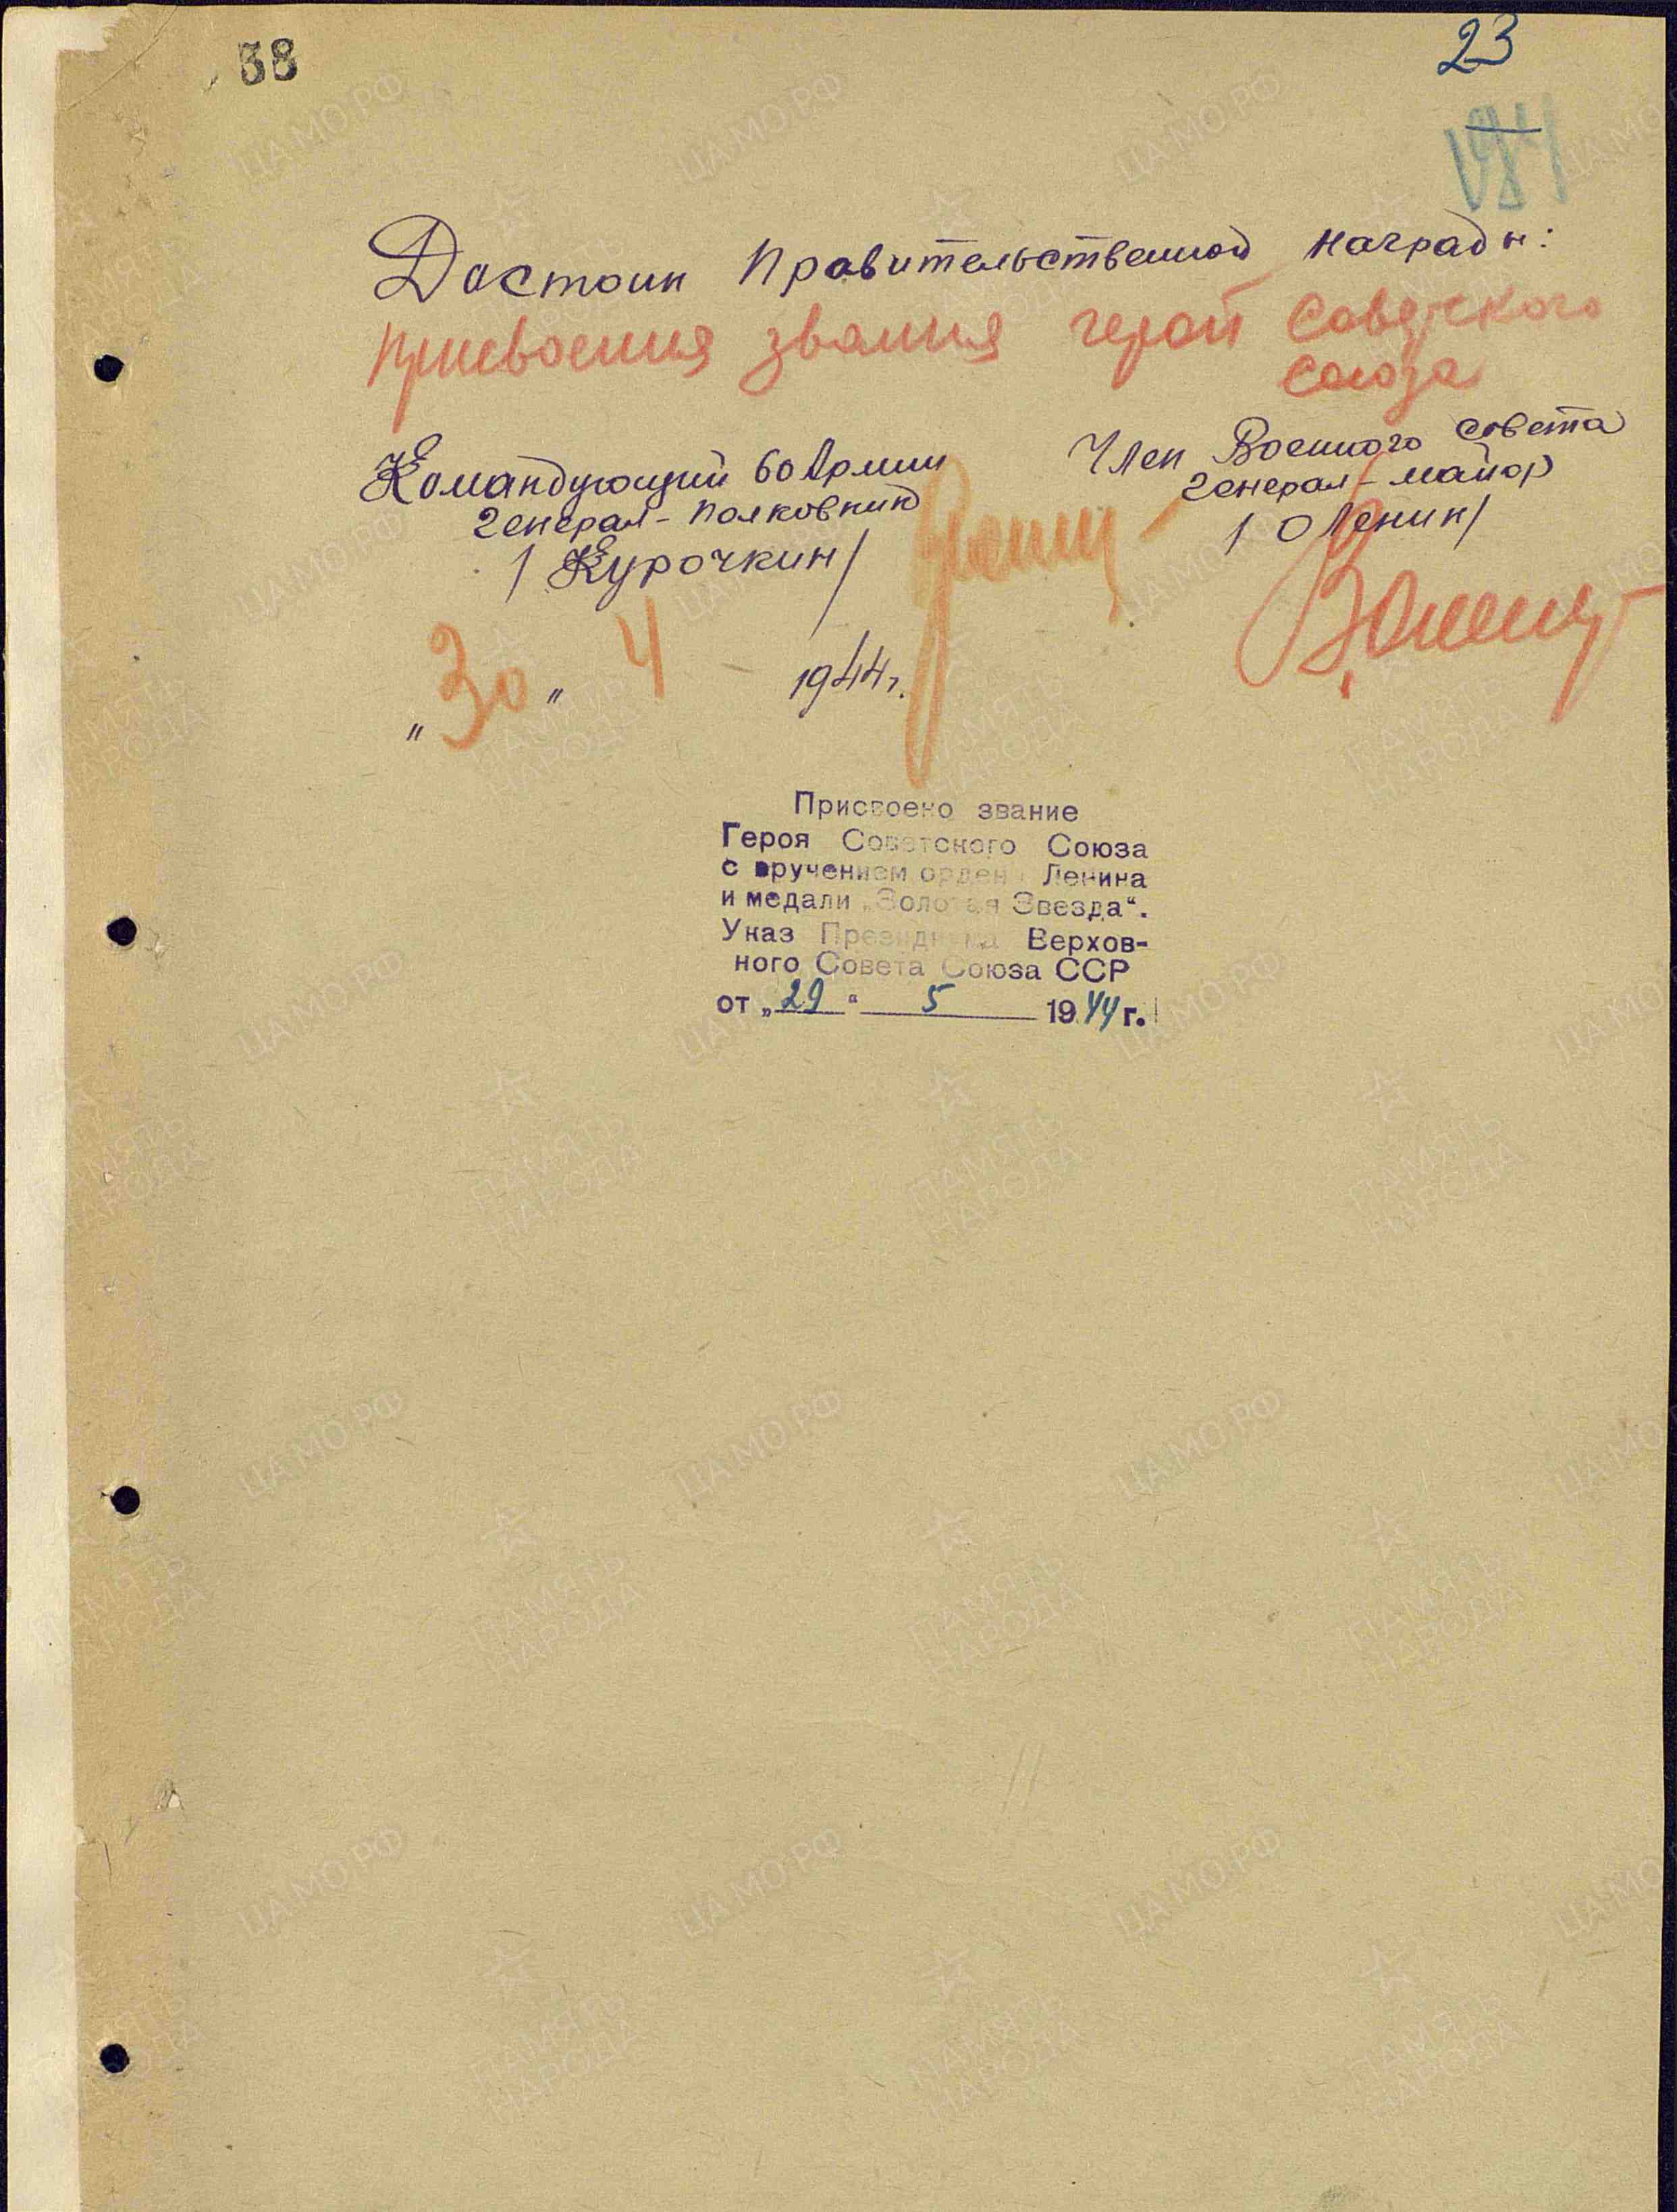 38
23
Достоин Правительственной награды:
присвоения звания герой Советского
Союза
Командующий 60 Армии
генерал-полковник
/ Курочкин /
Член Военного совета
генерал-майор
/ Оленин /
„30“ 4 1944 г.
Присвоено звание
Героя Советского Союза
с вручением ордена Ленина
и медали „Золотая Звезда“.
Указ Президиума Верхов-
ного Совета Союза ССР
от „29“ 5 1944 г.
ЦАМО.РФ
ПАМЯТЬ
НАРОДА